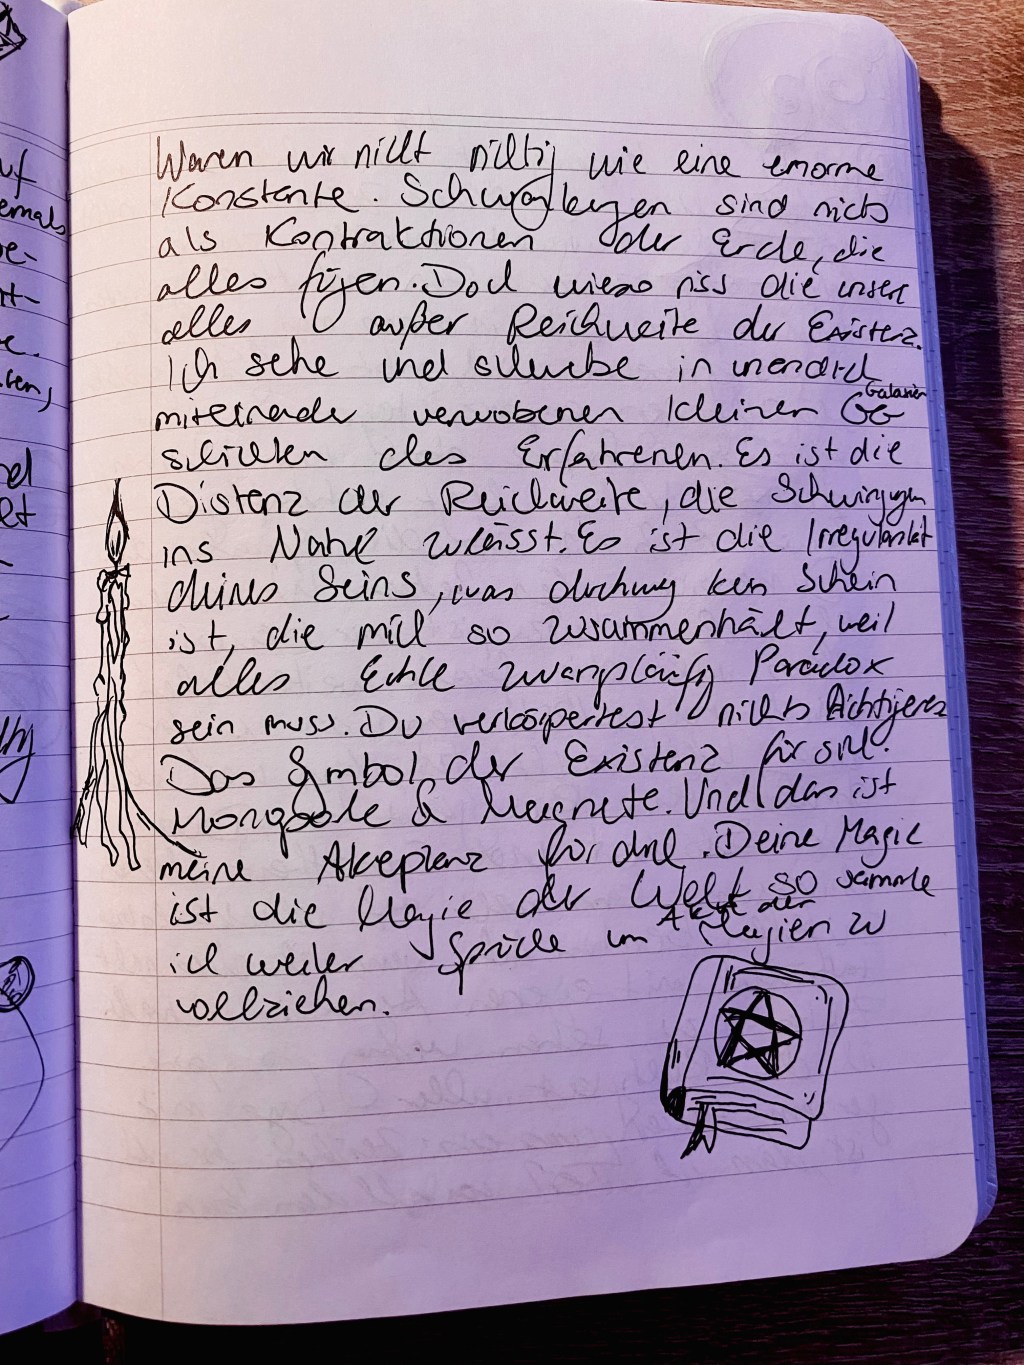 Waren wir nicht nichtig wie eine enorme
Konstante. sind nichts
als Kontraktionen der Erde, die
alles fügen. Doch wieso riss die unser
alles außer Reichweite der Existenz.
Ich sehe und schwebe in unendlich
miteinander verwobenen kleinen Galaxien
schichten des Erfahrenen. Es ist die
Distanz der Reichweite, die Schwingungen
ins Nahe zulässt. Es ist die Irregularität
deines Seins, was durchweg kein Schein
ist, die mich so zusammenhält, weil
alles Echte zwangsläufig Paradox
sein muss. Du verkörpertest nichts Richtigeres
Das Symbol der Existenz für sich.
Monopole & Magnete. Und das ist
meine Akzeptanz für dich. Deine Magie
ist die Magie der Welt so sammle
ich weiter Sprüche um Akte der Magien zu
vollziehen.
uf
emals
e-
nt-
e.